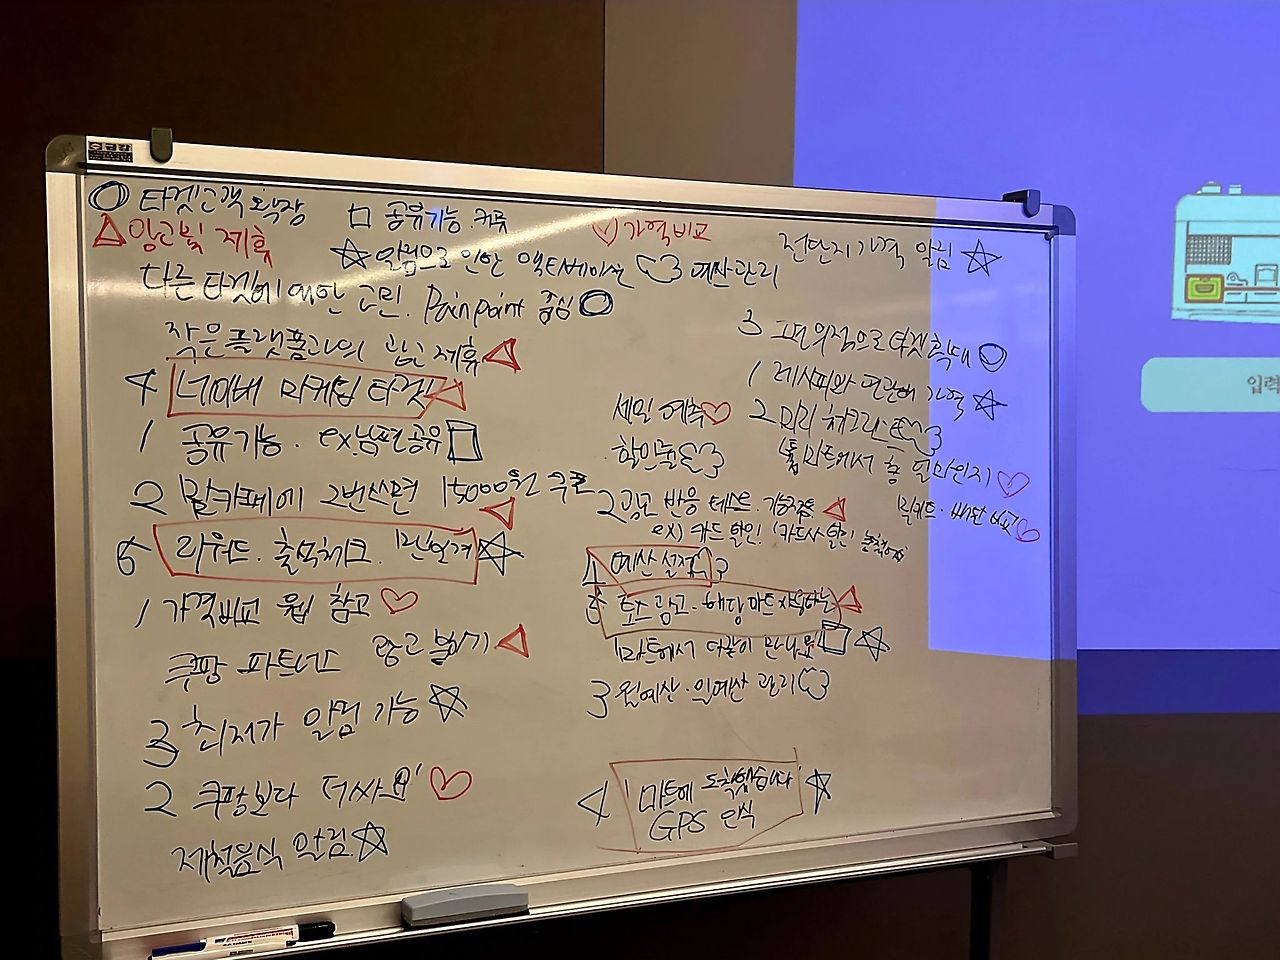 타겟고객 확장
ㅁ 공유기능. 커뮤
가격비교
전단지 가격 알림
광고 및 제휴
알림으로 인한 액티베이션
예산관리
다른 타겟에 대한 고민. Pain point 중심
작은 플랫폼과의 광고 제휴
3 그때 의적으로 타겟 확대
4 네이버 마케팅 타겟
1 레시피와 연관해 가격
세일 예측
2 미리 체크리스트
1 공유기능. ex.남편공유
할인률
(홈마트에서 총 얼마인지)
2 맘카페에 2번쓰면 15000원 쿠폰
2 광고 반응 테스트.
밀키트. 배달 비교
ex) 카드 할인! (카드사 할인
6 리워드. 출석체크.
4 예산 설정
1 가격비교 웹 참고
5 토스 광고. 해당마트 사용하는
쿠팡 파트너스 광고 붙이기
'마트에서 더같이 만나요
3 최저가 알림 기능
3 월예산. 일예산 관리
2 쿠팡보다 더싸요!'
4 '마트에 도착했습니다'
GPS 인식
제철음식 알림
입력